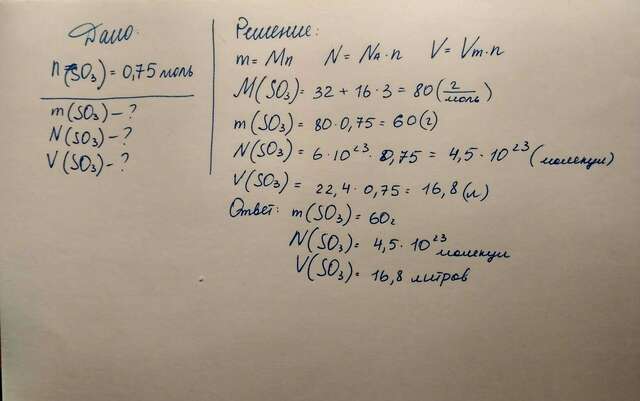 Дано:
n(SO₃) = 0,75 моль
m(SO₃) - ?
N(SO₃) - ?
V(SO₃) - ?
Решение:
m = Mn N = Nᴀ·n V = Vm·n
M(SO₃) = 32 + 16·3 = 80 (г/моль)
m(SO₃) = 80·0,75 = 60 (г)
N(SO₃) = 6·10²³·0,75 = 4,5·10²³ (молекул)
V(SO₃) = 22,4·0,75 = 16,8 (л)
Ответ: m(SO₃) = 60г
N(SO₃) = 4,5·10²³ молекул
V(SO₃) = 16,8 литров